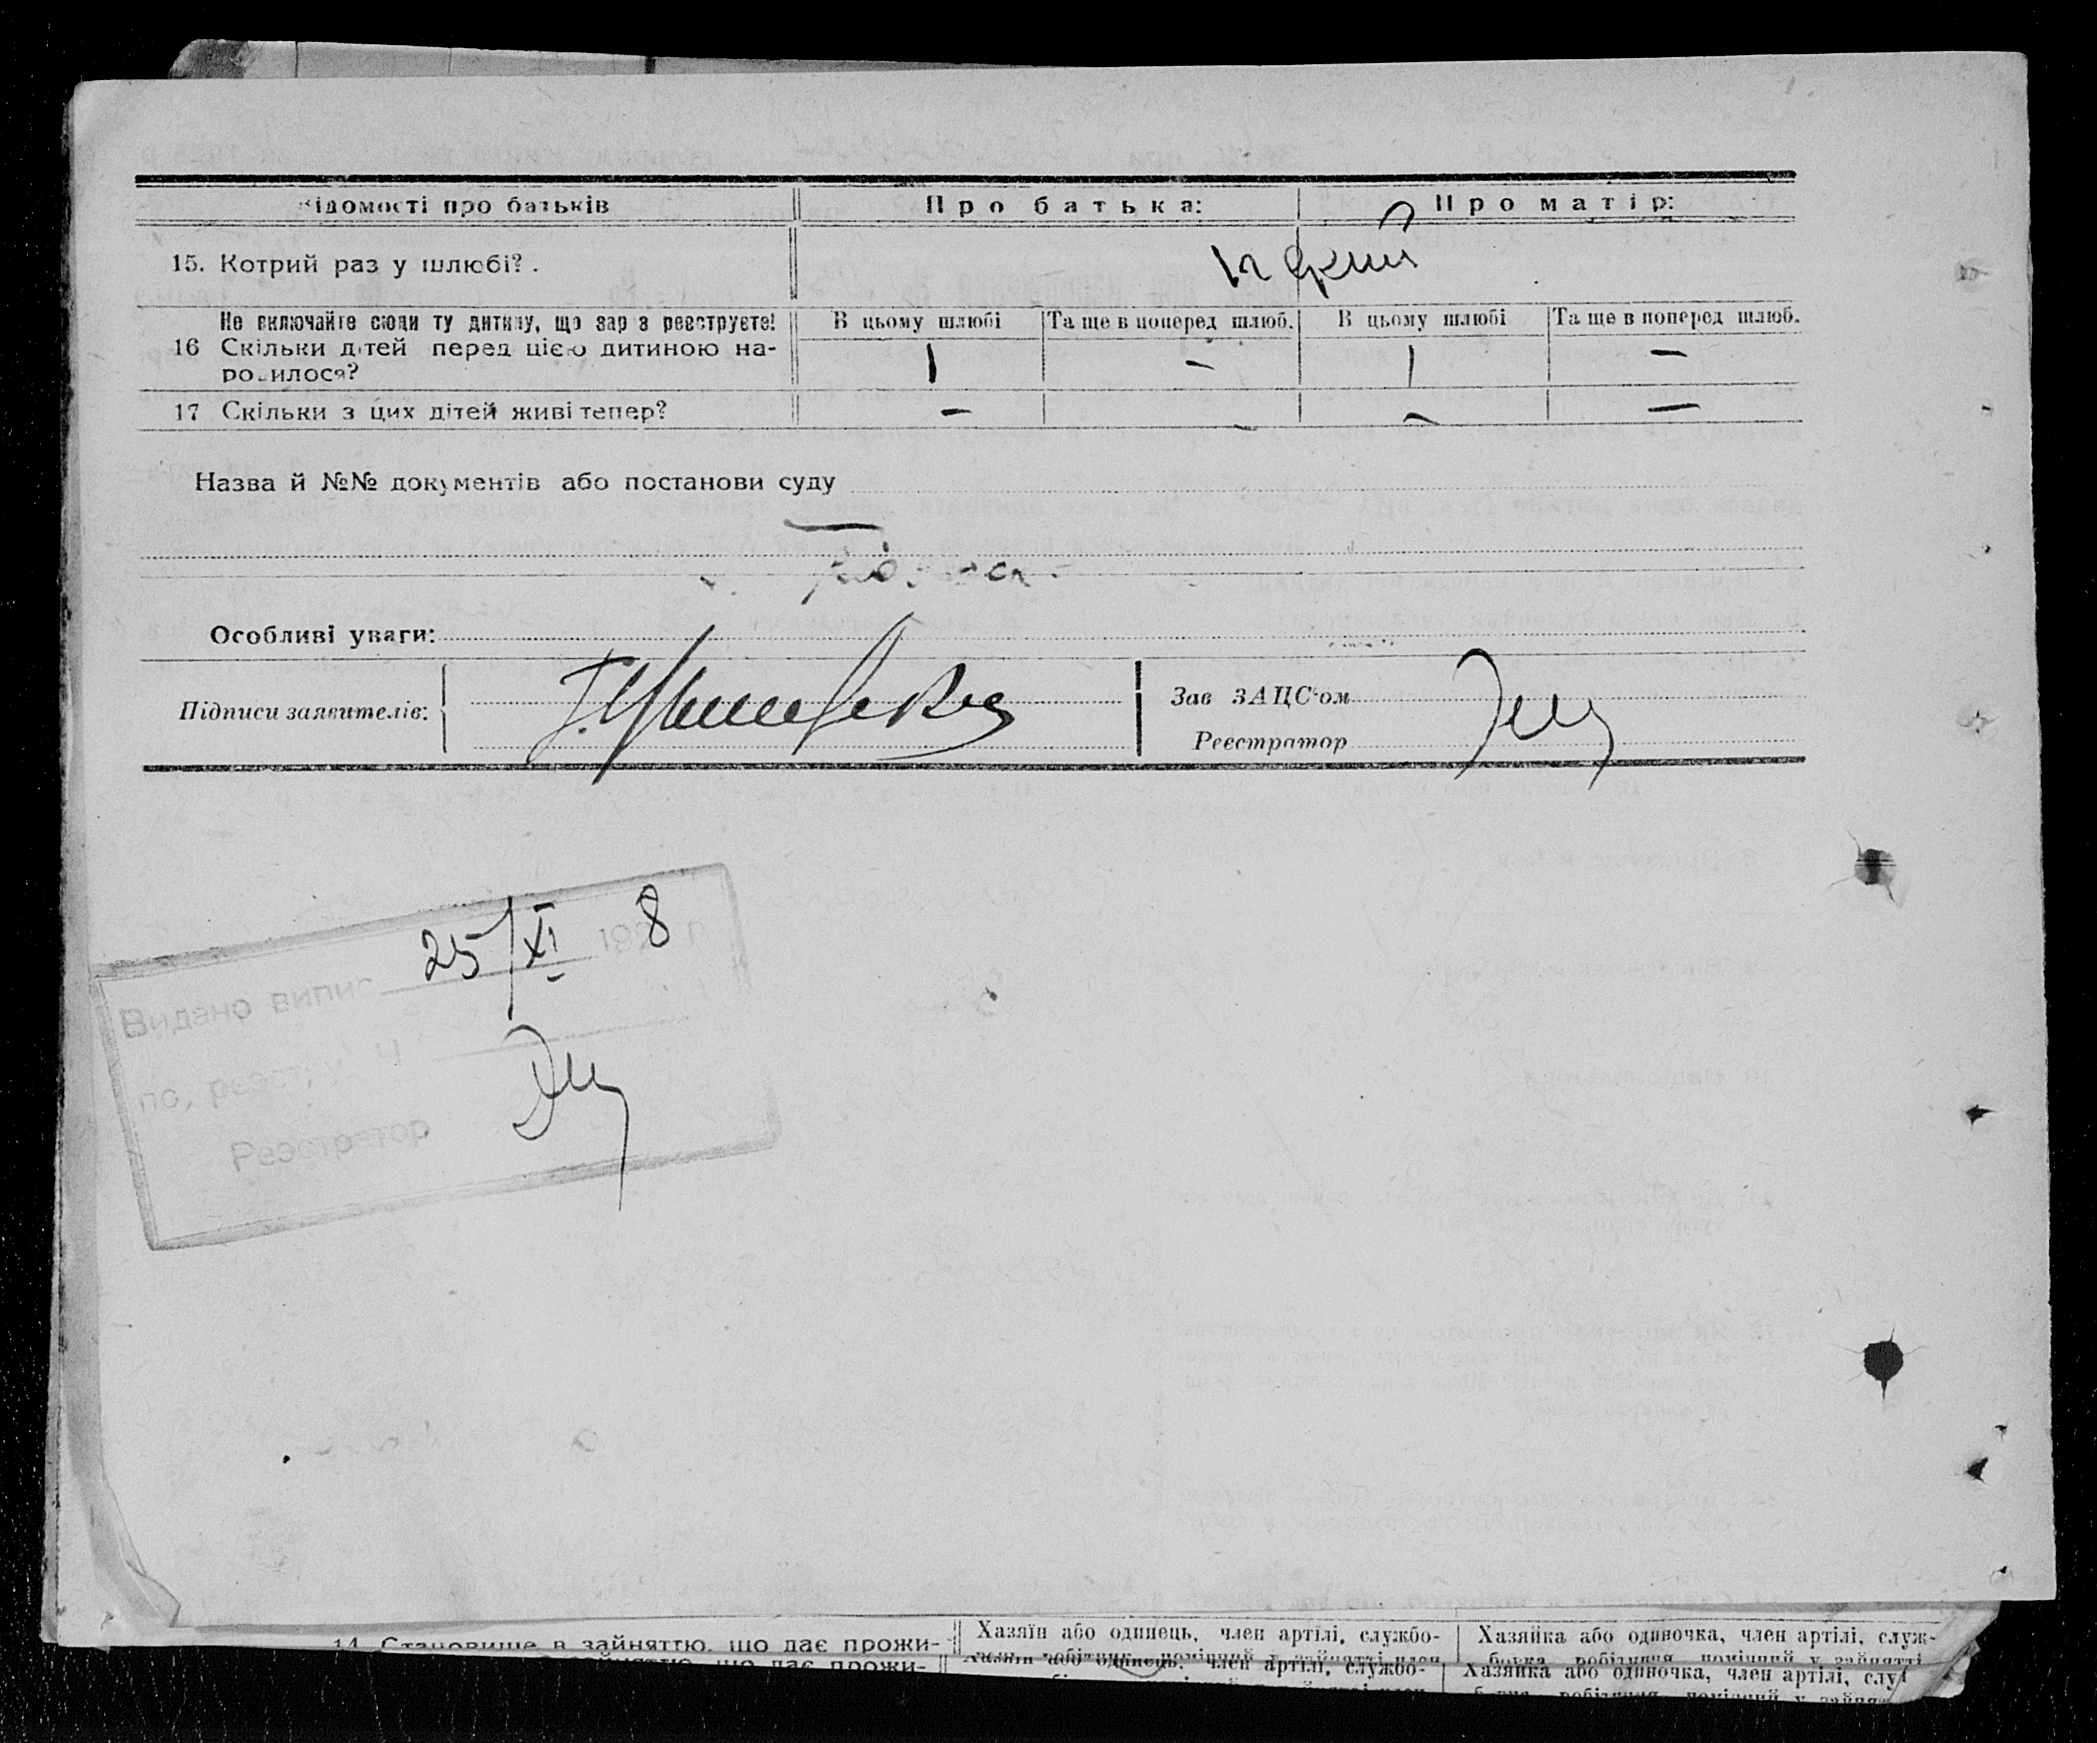 Відомості про батьків Про батька: Про матір:
15. Котрий раз у шлюбі?.
Не включайте сюди ту дитину, що зараз реєструєте! В цьому шлюбі Та ще в поперед шлюб. В цьому шлюбі Та ще в поперед шлюб.
16 Скільки дітей перед цією дитиною на-
родилося? 1 — 1 —
17 Скільки з цих дітей живі тепер? — — — —
Назва й №№ документів або постанови суду
—
Особливі уваги:
Підписи заявителів:
Зав ЗАЦС'ом
Реєстратор
Видано випис 25/XI 1928 р
по, реєстру Ч
Реєстратор
14 Становище в зайняттю, що дає прожи- Хазяїн або одинець, член артілі, службо- Хазяйка або одиночка, член артілі, служ-
що дає прожи- Хазяїн або одинець, член артілі, службо- Хазяйка або одиночка, член артілі, слу